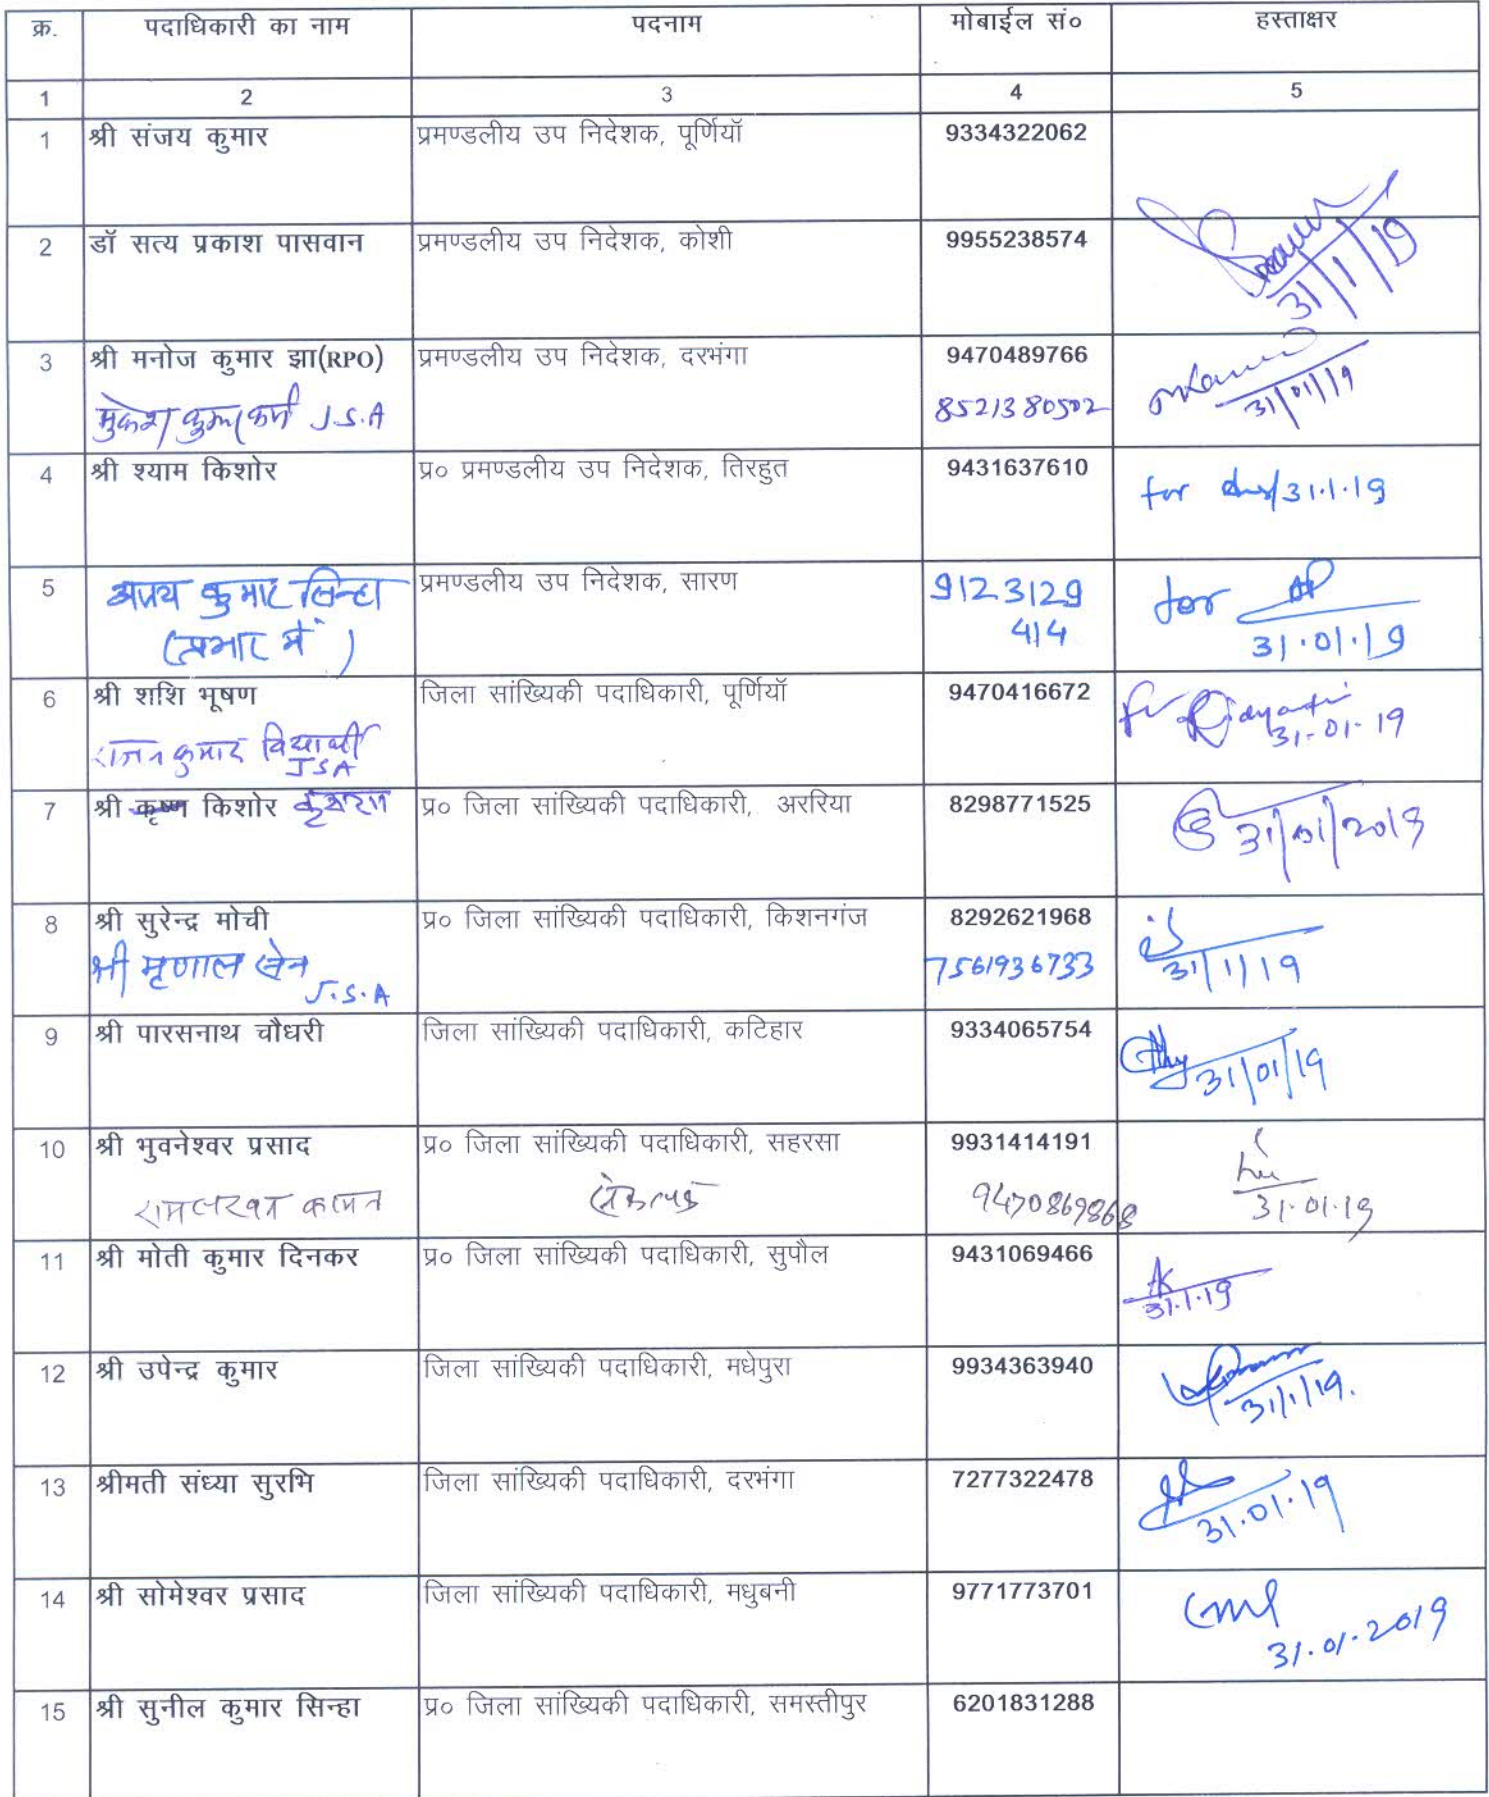 क्र. पदाधिकारी का नाम पदनाम मोबाईल सं० हस्ताक्षर
1 2 3 4 5
1 श्री संजय कुमार प्रमण्डलीय उप निदेशक, पूर्णियॉ 9334322062
2 डॉ सत्य प्रकाश पासवान प्रमण्डलीय उप निदेशक, कोशी 9955238574
31/1/19
3 श्री मनोज कुमार झा(RPO) प्रमण्डलीय उप निदेशक, दरभंगा 9470489766
मुकेश कुमार कर्ण J.S.A 8521380502 31/01/19
4 श्री श्याम किशोर प्र० प्रमण्डलीय उप निदेशक, तिरहुत 9431637610
for 31.1.19
5 अजय कुमार सिन्हा प्रमण्डलीय उप निदेशक, सारण 9123129 for
(प्रभार में) 414 31.01.19
6 श्री शशि भूषण जिला सांख्यिकी पदाधिकारी, पूर्णियॉ 9470416672
राजन कुमार विद्यार्थी 31-01-19
JSA
7 श्री कृष्ण किशोर प्र० जिला सांख्यिकी पदाधिकारी, अररिया 8298771525
31/01/2019
8 श्री सुरेन्द्र मोची प्र० जिला सांख्यिकी पदाधिकारी, किशनगंज 8292621968
श्री मृणाल सेन 7561936733 31/1/19
J.S.A
9 श्री पारसनाथ चौधरी जिला सांख्यिकी पदाधिकारी, कटिहार 9334065754
31/01/19
10 श्री भुवनेश्वर प्रसाद प्र० जिला सांख्यिकी पदाधिकारी, सहरसा 9931414191
रामलखन कामत 9470869868 31.01.19
11 श्री मोती कुमार दिनकर प्र० जिला सांख्यिकी पदाधिकारी, सुपौल 9431069466
31.1.19
12 श्री उपेन्द्र कुमार जिला सांख्यिकी पदाधिकारी, मधेपुरा 9934363940
31/1/19.
13 श्रीमती संध्या सुरभि जिला सांख्यिकी पदाधिकारी, दरभंगा 7277322478
31.01.19
14 श्री सोमेश्वर प्रसाद जिला सांख्यिकी पदाधिकारी, मधुबनी 9771773701
31.01.2019
15 श्री सुनील कुमार सिन्हा प्र० जिला सांख्यिकी पदाधिकारी, समस्तीपुर 6201831288